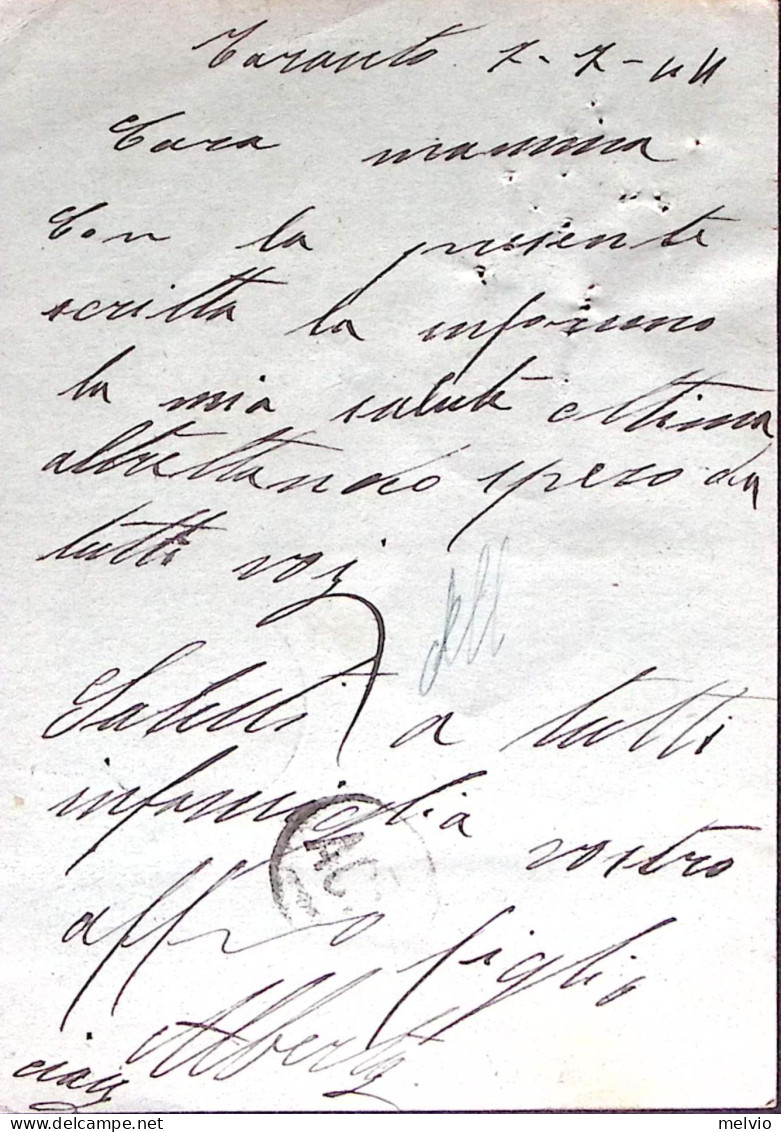 Taranto 7-7-44
Cara mamma
Con la presente
scritta la informo
la mia salute ottima
altrettando spero da
tutti voi
Saluti a tutti
in famiglia vostro
aff/mo figlio
Alberto
ciao
delcampe.net
melvio